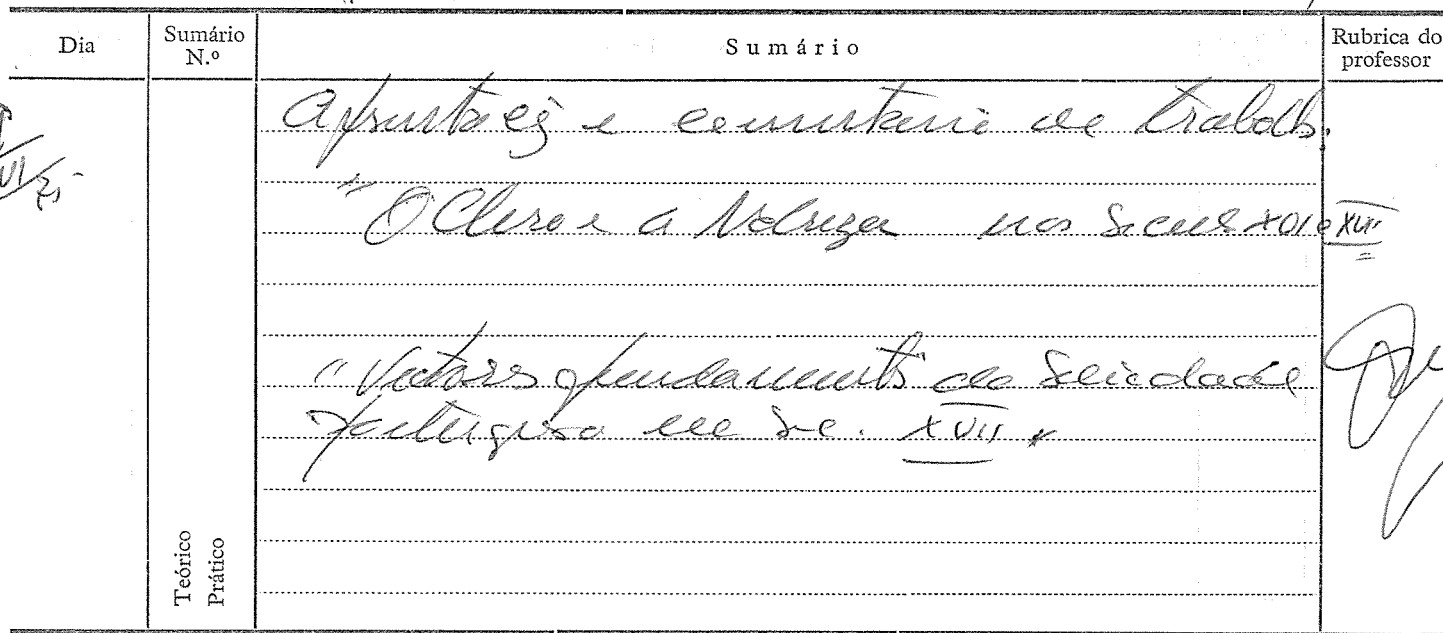 Dia
Sumário N.º
Sumário
Rubrica do professor
Apresentação e comentário de trabalhos.
"O Clero e a Nobreza nos Séculos XVI e XVII
"Vectores fundamentais da Sociedade
portuguesa no Séc. XVII"
Teórico
Prático